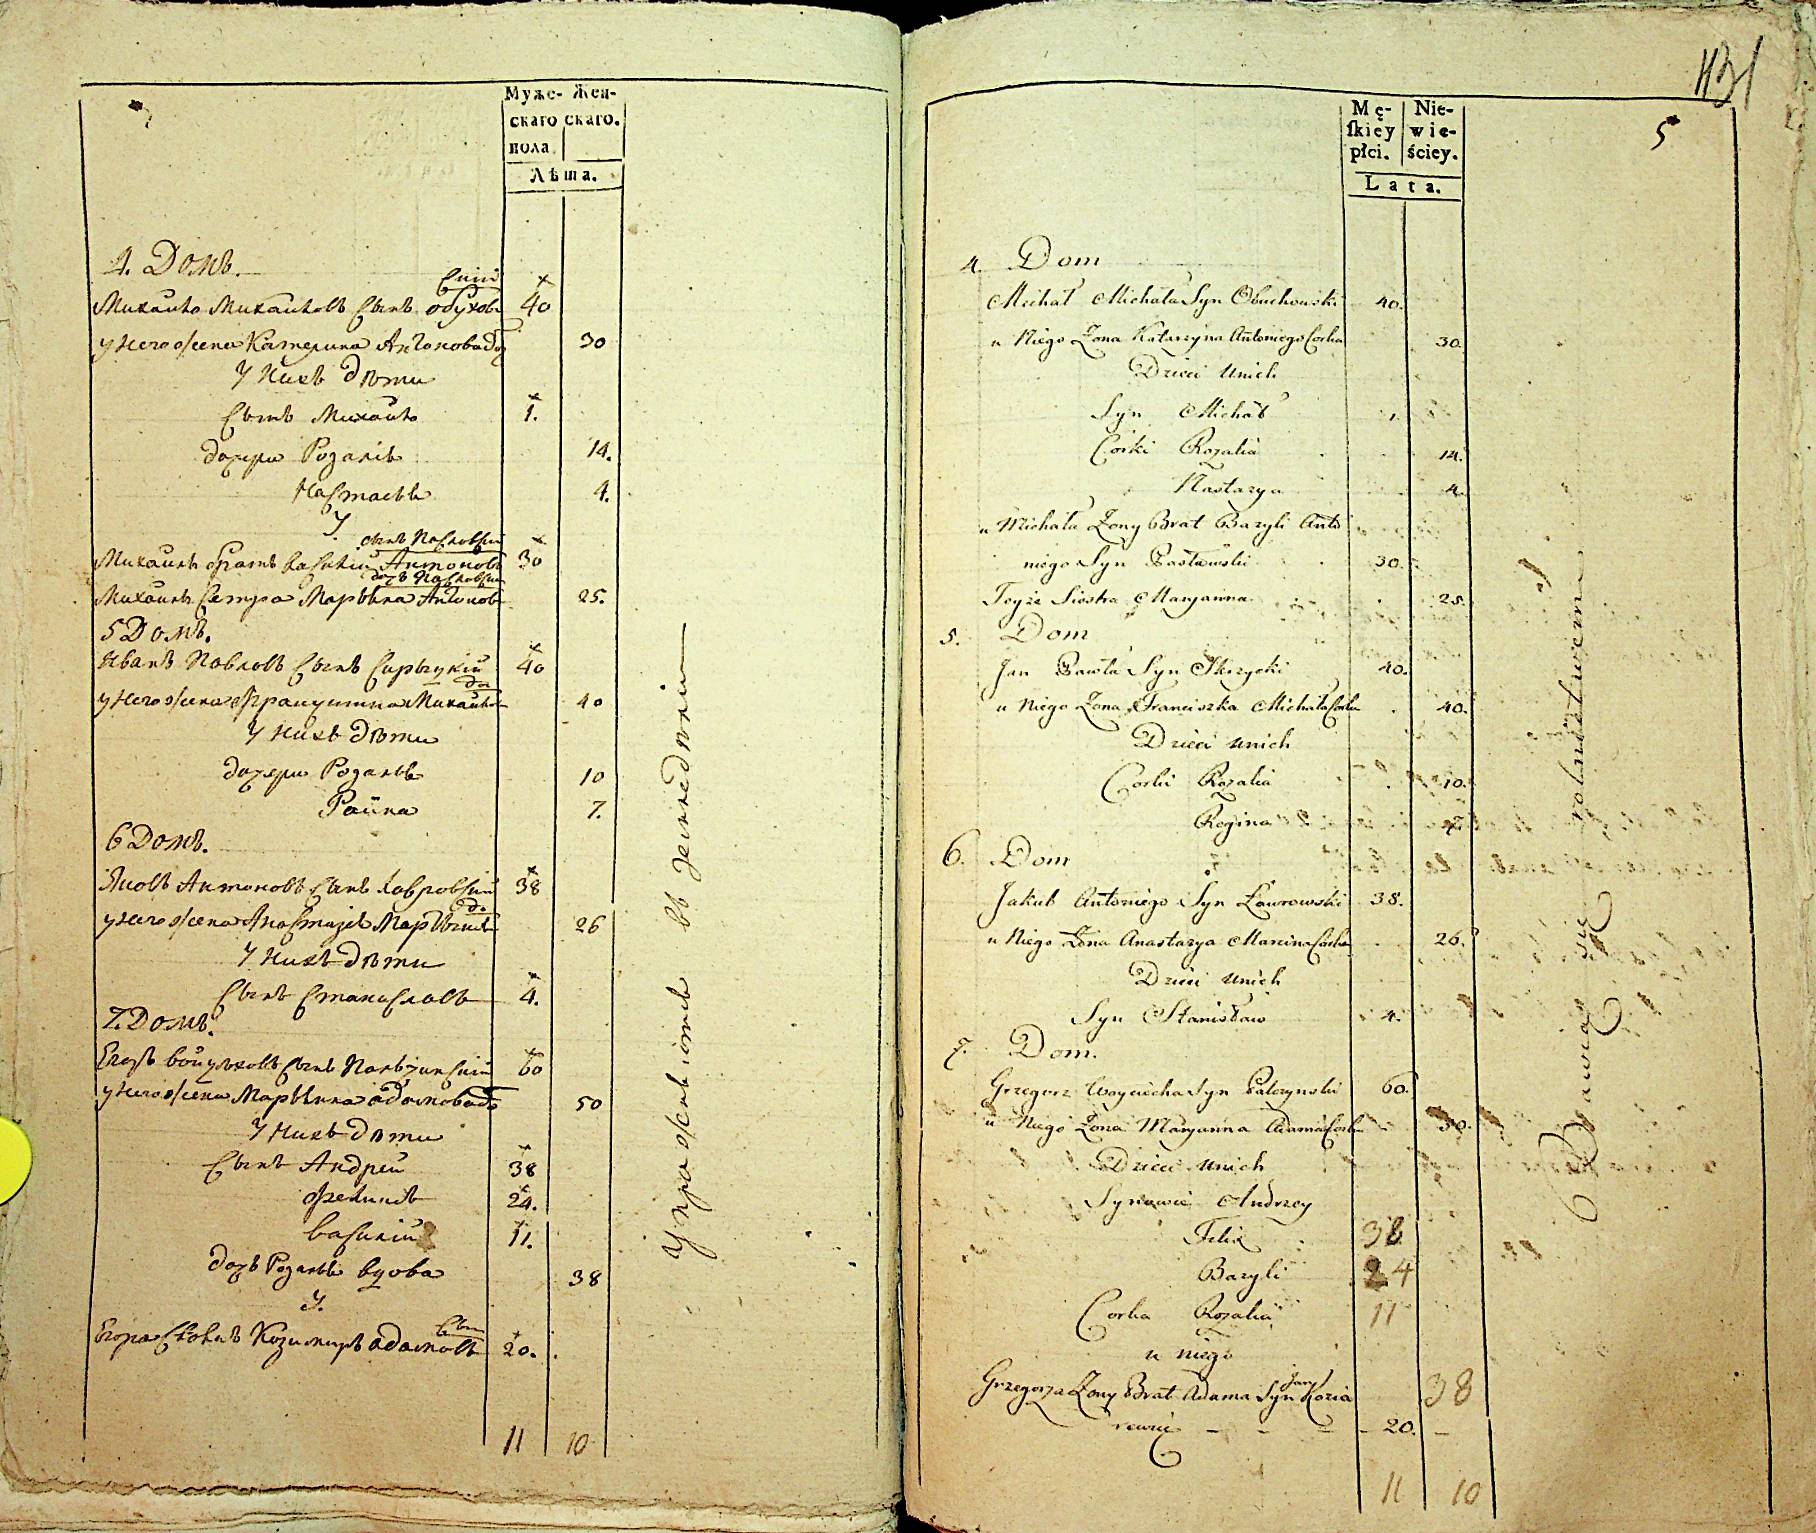 Муже- Жен-
скаго скаго.
пола.
Лѣта.
4. Домъ.
скій
Михайло Михайловъ сынъ Обухов 40
у него жена Катерина Антонова до 30
У нихъ дѣти
сынъ Михайло 1.
дочери Розалiѣ 14.
Настасья 4.
У
сынъ Пасловскій
Михайлы братъ Василій Антоновъ 30
Михайлы сестра Марьяна Антонов 25.
5 Домъ.
Иванъ Павловъ сынъ Скрыцкій 40
до
у него жена Францишка Михайло 40
У нихъ дѣти
дочери Розалья 10
Раина 7.
6 Домъ.
Яковъ Антоновъ сынъ Лавровскій 38
до
у него жена Анастазія Мартынов 26
У нихъ дѣти
сынъ Станиславъ 4.
7. Домъ.
Егоръ Войцѣховъ сынъ Пальчинскій 60
у него жена Марьяна Адамова до 50
У нихъ дѣти
сынъ Андрей 38
Феликсъ 24.
Василій 11.
дочь Розалья вдова 38
У.
сын
Егора Казимиръ Адамовъ 20.
11 10
Упражняются въ земледѣліи
1131
5
Mę- Nie-
skiey wie-
płci. ściey.
Lata.
4. Dom
Michał Michała Syn Obuchowski 40.
u Niego Żona Katarzyna Antoniego Corka 30.
Dzieci unich
Syn Michał 1.
Corki Rozalia 14.
Nastazya 4.
u Michała Żony Brat Bazyli Anto
niego Syn Pasławski 30.
Teyże Siostra Maryanna 25.
5. Dom
Jan Pawła Syn Skrzycki 40.
u Niego Żona Franciszka Michała Corka 40.
Dzieci unich
Corki Rozalia 10.
Regina 7.
6. Dom
Jakub Antoniego Syn Ławrowski 38.
u Niego Żona Anastazya Marcina Corka 26.
Dzieci unich
Syn Stanisław 4.
7. Dom.
Grzegorz Woyciecha Syn Palczynski 60.
u Niego Żona Maryanna Adama Corka 50.
Dzieci unich
Synowie Andrzey
Felix 38
Bazyli 24
Corka Rozalia 11
u niego
Grzegorza Żony Brat Adama Syn Kozia 38
rewicz 20.
11 10
Bawią się rolnictwem